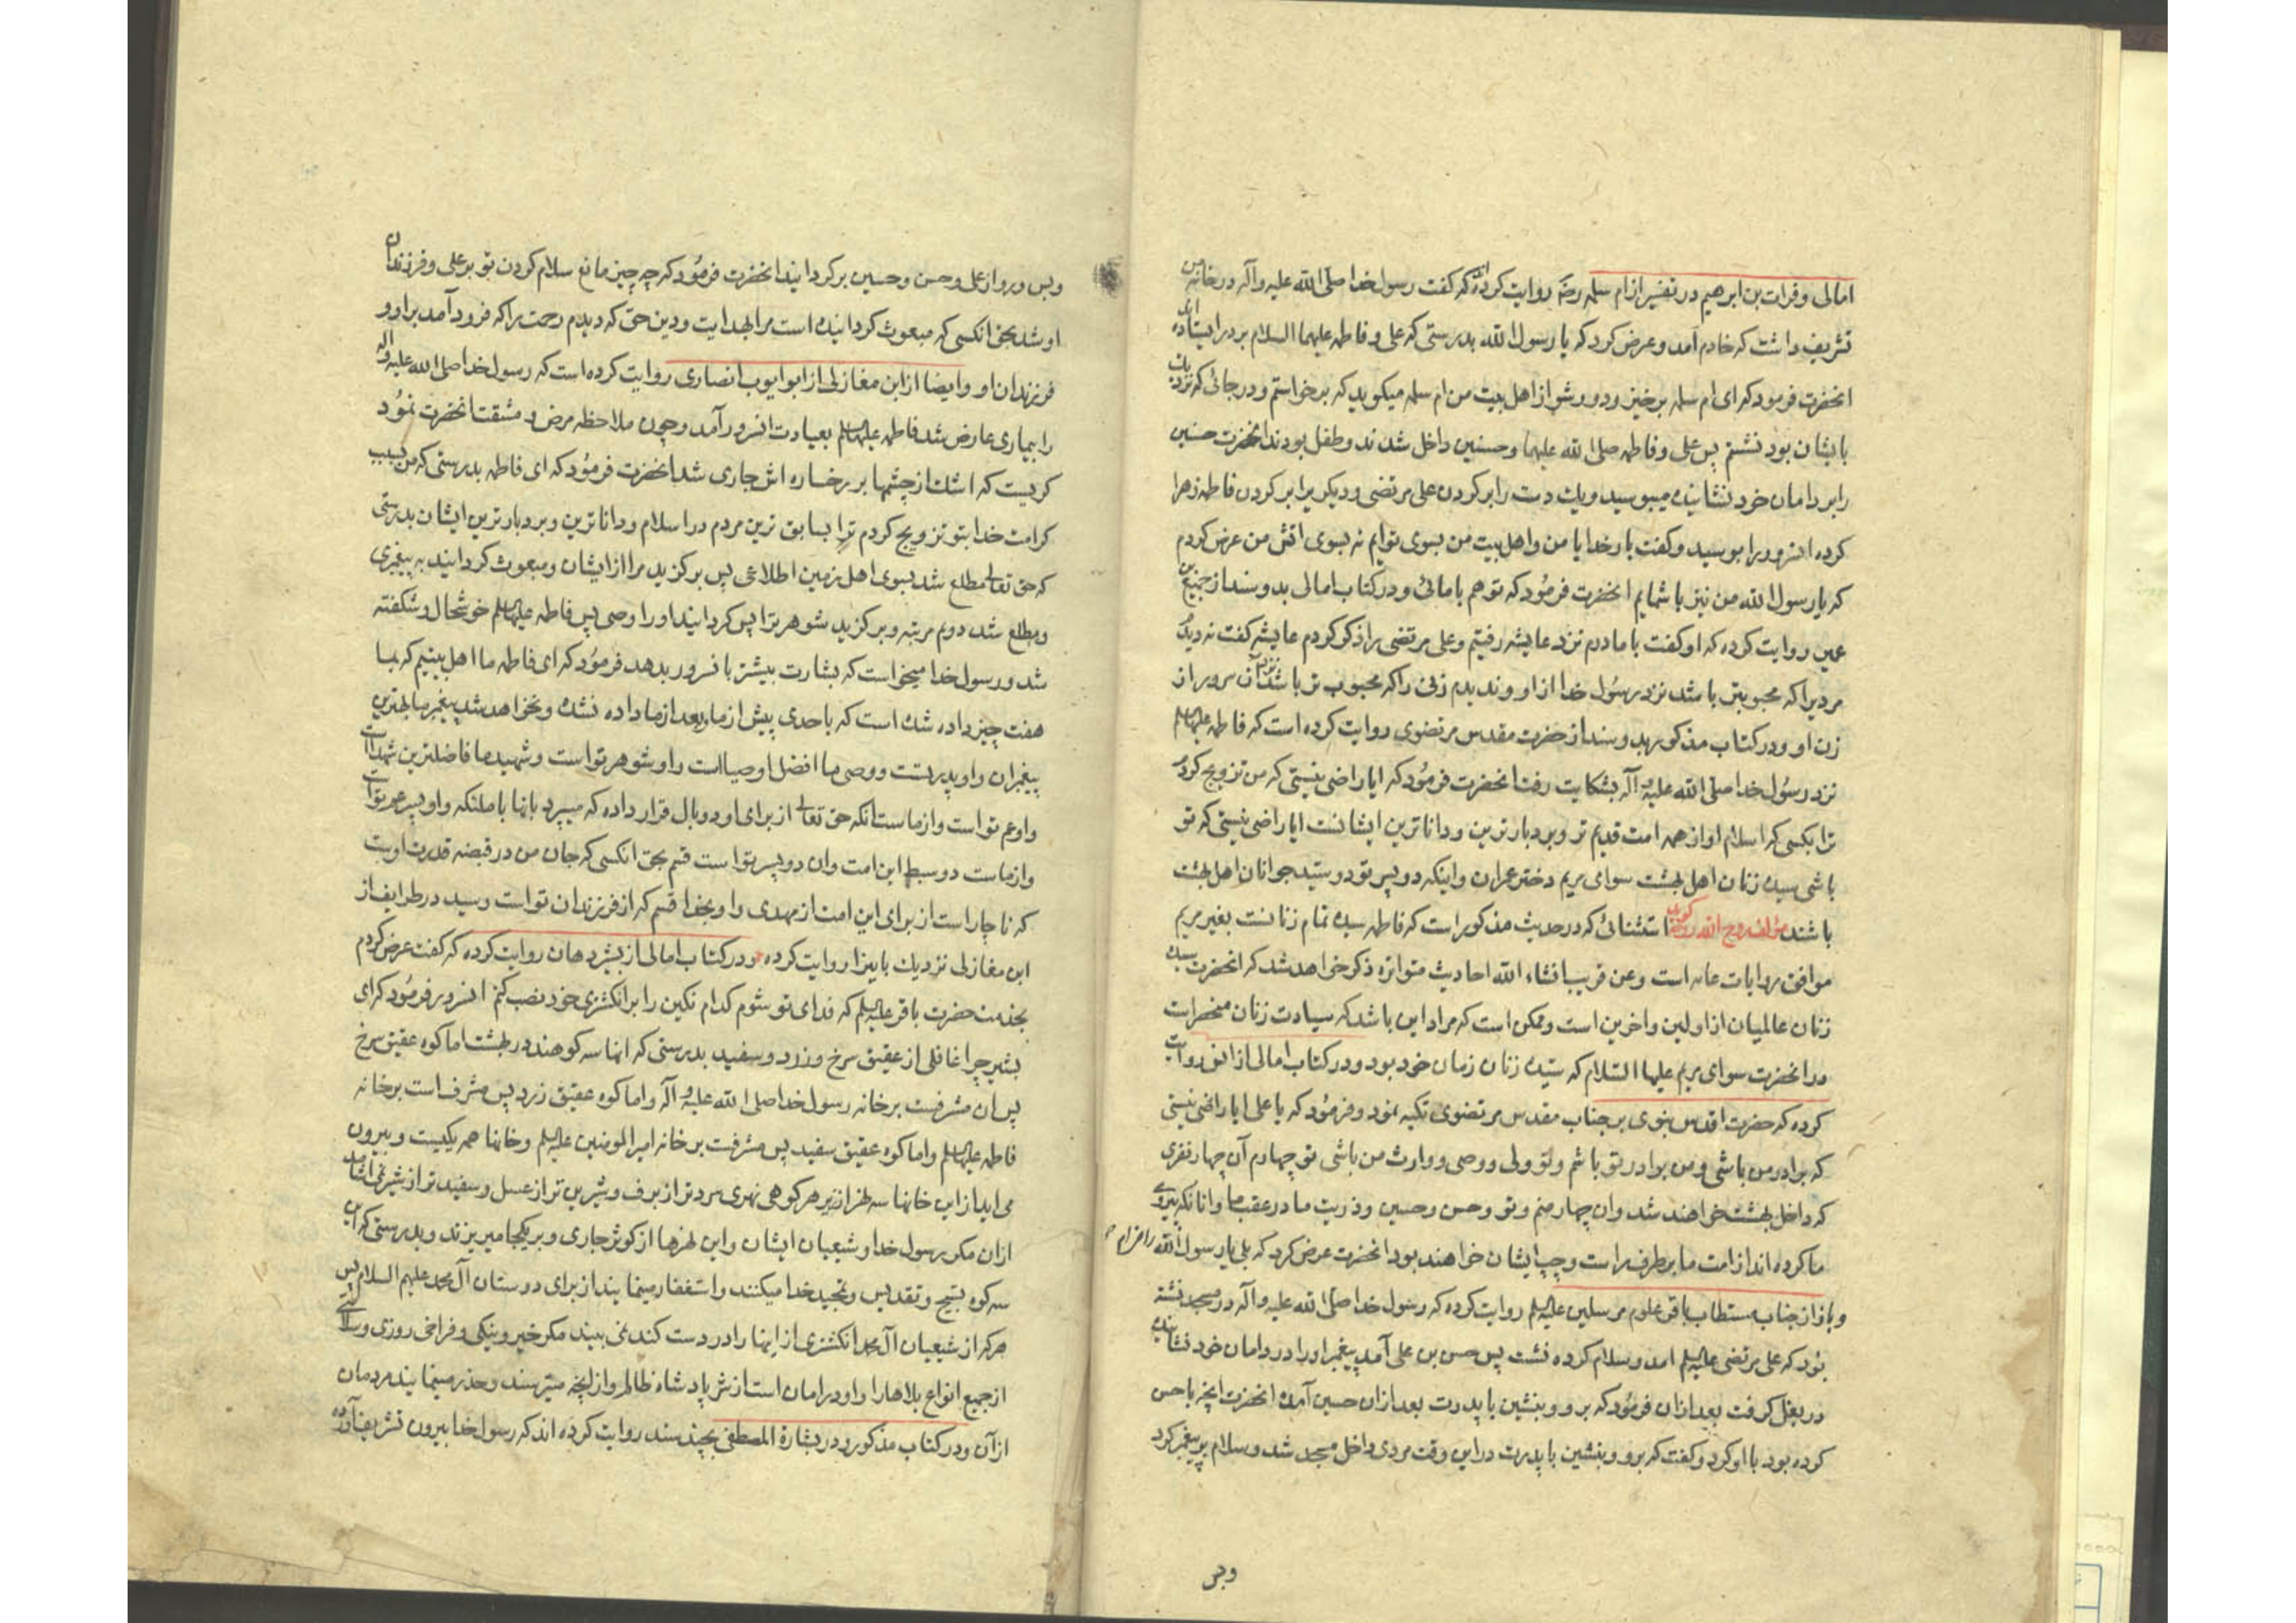 امالی و فرات بن ابرهیم در تفسیر از ام سلمه رضه روایت کرده‌اند که گفت رسول خدا صلی الله علیه وآله در خانه من
تشریف داشت که خادم آمد و عرض کرد که یا رسول الله بدرستی که علی و فاطمه علیهما السلام بر در ایستاده اند
انحضرت فرمود که ای ام سلمه برخیز و دور شو از اهل بیت من ام سلمه میکوید که برخواستم و در جائی که نزدیک
بایشان بود نشستم پس علی و فاطمه صلی الله علیهما وحسنین داخل شدند و طفل بودند انحضرت حسنین
را بر دامان خود نشانیده میبوسید و یک دست را بر کردن علی مرتضی و دیکریرا بر کردن فاطمه زهرا
کرده انسرور را بوسید و کفت بار خدایا من و اهل بیت من بسوی توایم نه بسوی اتش من عرض کردم
که یا رسول الله من نیز با شمایم انحضرت فرمود که تو هم با مائی و در کتاب امالی بدو سند از جمیع بن
عمیر روایت کرده که او کفت با مادرم نزد عایشه رفتیم و علی مرتضی را ذکر کردم عایشه کفت ندیدم
مردیرا که محبوبتر باشد نزد رسول خدا از او و ندیدم زنی را که محبوب تر باشد نزد آن سرور از
زن او و در کتاب مذکور بهمین دو سند از حضرت مقدس مرتضوی روایت کرده است که فاطمه علیها السلم
نزد رسول خدا صلی الله علیه وآله بشکایت رفت انحضرت فرمود که ایا راضی نیستی که من تزویج کردم
ترا بکسی که اسلام او از همه امت قدیم تر و بردبار ترین و داناترین ایشانست ایا راضی نیستی که تو
باشی سیده زنان اهل بهشت سوای مریم دختر عمران و اینکه دو پسر تو دو سید جوانان اهل بهشت
باشند مؤلف روح الله روحه کوید استثنائی که در حدیث مذکور است که فاطمه سیده تمام زنانست بغیر مریم
موافق روایات عامه است و عن قریب انشاء الله احادیث متواتره ذکر خواهد شد که انحضرت سیده
زنان عالمیان از اولین و اخرین است و ممکن است که مراد این باشد که سیادت زنان منحصر است
در انحضرت سوای مریم علیها السلام که سیده زنان زمان خود بود و در کتاب امالی از انس روایت
کرده که حضرت اقدس نبوی بر جناب مقدس مرتضوی تکیه نمود و فرمود که یا علی ایا راضی نیستی
که برادر من باشی و من برادر تو باشم و تو ولی و وصی و وارث من باشی تو چهارم آن چهار نفری
که داخل بهشت خواهند شد وان چهار منم و تو و حسن و حسین و ذریت ما در عقب ما و انانکه پیروی
ما کرده اند از امت ما بر طرف راست و چپ ایشان خواهند بود انحضرت عرض کرد که بلی یا رسول الله
و باز از جناب مستطاب باقر علوم مرسلین علیه السلم روایت کرده که رسول خدا صلی الله علیه وآله در مسجد نشسته
بود که علی مرتضی علیه السلم امد و سلام کرده نشست پس حسن بن علی آمد پیغمبر او را در دامان خود نشانیده
در بغل کرفت بعد ازان فرمود که برو و بنشین با پدرت بعد ازان حسین آمده انحضرت انچه با حسن
کرده بود با او کرد و کفت که برو و بنشین با پدرت در این وقت مردی داخل مسجد شد و سلام بر پیغمبر کرد
وبس
وبس و رو از علی و حسن و حسین برکردانید انحضرت فرمود که چه چیز مانع سلام کردن تو بر علی و فرزندان
او شد بحق انکسی که مبعوث کردانیده است مرا بهدایت و دین حق که دیدم رحمت را که فرود آمد بر او و
فرزندان او و ایضا از ابن مغازلی از ابو ایوب انصاری روایت کرده است که رسول خدا صلی الله علیه واله
را بیماری عارض شد فاطمه علیها السلم بعیادت انسرور آمد و چون ملاحظه مرض و مشقت انحضرت نمود
کریست که اشک از چشمها بر رخساره اش جاری شد انحضرت فرمود که ای فاطمه بدرستی که من بسبب
کرامت خدا بتو تزویج کردم ترا بسابق ترین مردم در اسلام و داناترین و بردبارترین ایشان بدرستی
که حق تعالی مطلع شد بسوی اهل زمین اطلاعی پس برکزید مرا از ایشان و مبعوث کردانید به پیغمبری
و مطلع شد دوم مرتبه و برکزید شوهر ترا پس کردانید او را وصی پس فاطمه علیها السلم خوشحال و شکفته
شد و رسول خدا میخواست که بشارت بیشتر بانسرور بدهد فرمود که ای فاطمه ما اهل بیتیم که بما
هفت چیز داده شده است که باحدی پیش از ما و بعد از ما داده نشده و نخواهد شد پیغمبر ما بهترین
پیغمبران و او پدر تست و وصی ما افضل اوصیااست و او شوهر تو است و شهید ما فاضلترین شهدا است
و او عم تو است و از ماست انکه حق تعالی از برای او دو بال قرار داده که میپرد بانها با ملئکه و او پسر عم تو است
و از ماست دو سبط این امت و ان دو پسر تو است قسم بحق انکسی که جان من در قبضه قدرت اوست
که ناچار است از برای این امت از مهدی و او بخدا قسم که از فرزندان تو است و سید در طرایف از
ابن مغازلی نزدیک باینرا روایت کرده و در کتاب امالی از بشیر دهان روایت کرده که کفت عرض کردم
بخدمت حضرت باقر علیه السلم که فدای تو شوم کدام نکین را بر انکشتری خود نصب کنم انسرور فرمود که ای
بشیر چرا غافلی از عقیق سرخ و زرد و سفید بدرستی که انها سه کوهند در بهشت اما کوه عقیق سرخ
پس ان مشرفست بر خانه رسول خدا صلی الله علیه وآله و اما کوه عقیق زرد پس مشرف است بر خانه
فاطمه علیها السلم و اما کوه عقیق سفید پس مشرفست بر خانه امیر المومنین علیه السلم و خانها همه یکیست و بیرون
می اید از این خانها سه نهر از زیر هر کوهی نهری سرد تر از برف و شیرین تر از عسل و سفید تر از شیر نمی اشامد
ازان مکر رسول خدا و شیعیان ایشان و این نهرها از کوثر جاری و بر یکجا میریزند و بدرستی که این
سه کوه تسبیح و تقدیس و تمجید خدا میکنند و استغفار مینمایند از برای دوستان آل محمد علیهم السلام پس
هر که از شیعیان آل محمد انکشتری از اینها را در دست کند نمی بیند مکر خیر و نیکی و فراخی روزی و سلامتی
از جمیع انواع بلاها را و او در امان است از شر پادشاه ظالم و از انچه میترسند و حذر مینمایند مردمان
از آن و در کتاب مذکور و در بشارة المصطفی بچند سند روایت کرده اند که رسول خدا بیرون تشریف آورده